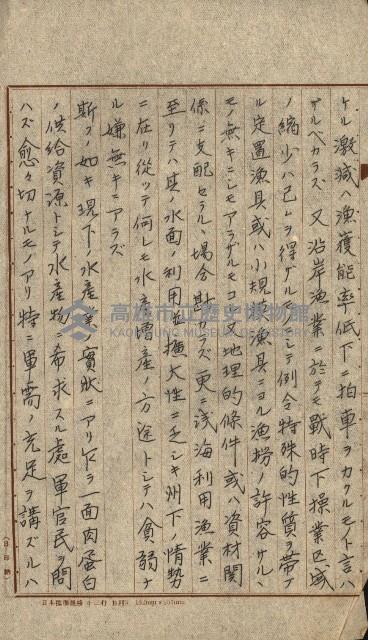 ケル激減ハ漁獲能率低下ニ拍車ヲカクルモノト言ハ
ザルベカラズ 又沿岸漁業ニ於テモ戰時下操業区域
ノ縮少ハ已ムヲ得ザルモノニシテ例令特殊的性質ヲ帯ブ
ル定置漁具或ハ小規模漁具ニヨル漁撈ノ許容サルヽ
モノ無キニシモアラザルモコレ又地理的條件或ハ資材関
係ニ支配セラルヽ場合尠カラズ更ニ浅海利用漁業ニ
至リテハ其ノ水面ノ利用ガ擴大性ニ乏シキ州下ノ情勢
ニ在リ従ツテ何レモ水産増産ノ方途トシテハ貧弱ナ
ル嫌無キニアラズ
斯クノ如キ現下ノ水産業ノ實狀ニアリ乍ラ一面肉蛋白
ノ供給資源トシテ水産物ヲ希求スル處軍官民ヲ問
ハズ愈々切ナルモノアリ特ニ軍需ノ充足ヲ講ズルハ
高雄市立歷史博物館
KAOHSIUNG MUSEUM OF HISTORY